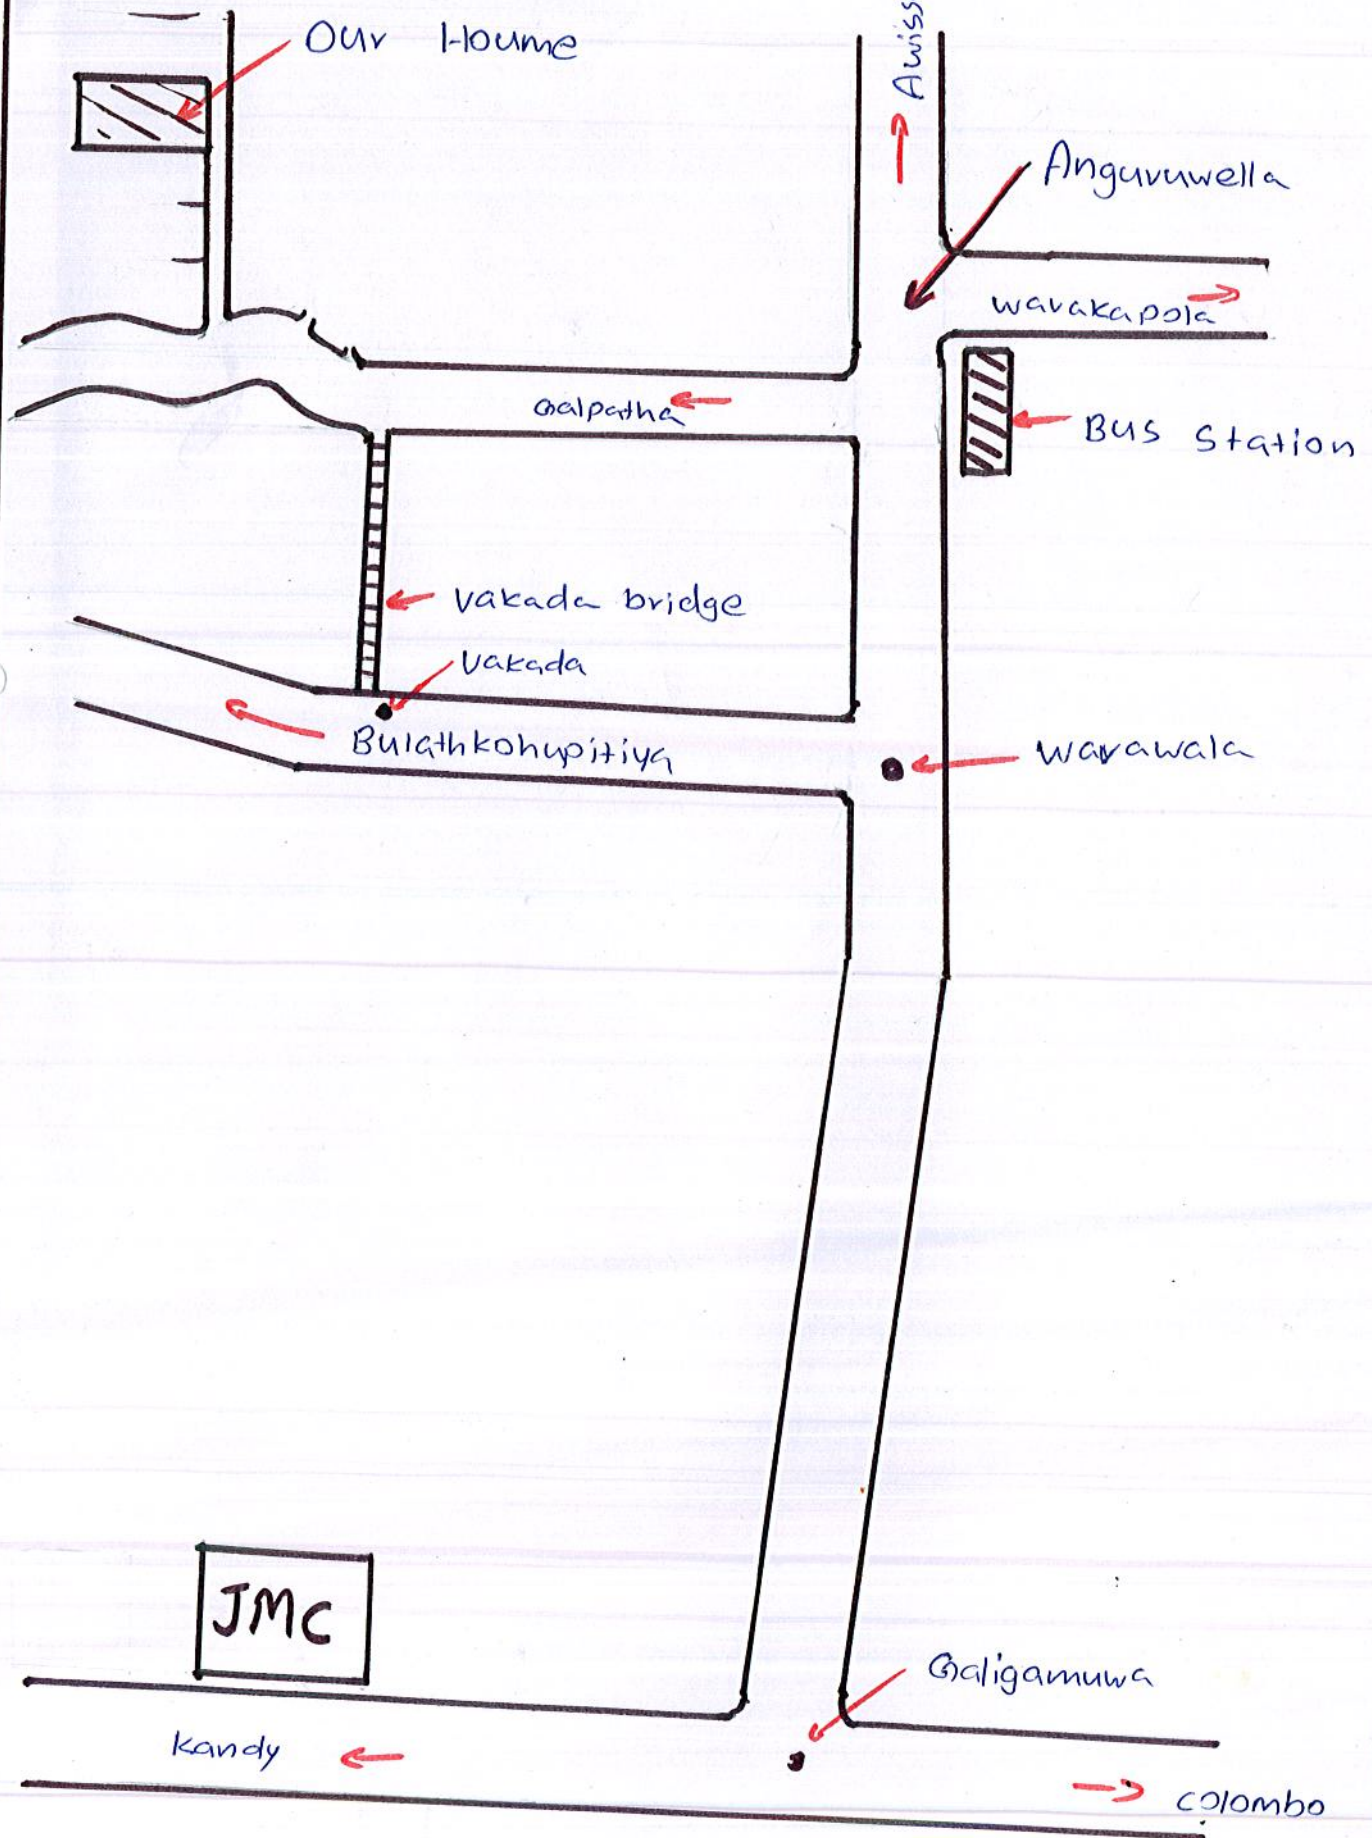 Our Houme
Awiss
Anguruwella
warakapola
Galpatha
Bus Station
Vakada bridge
Vakada
Bulathkohupitiya
warawala
JMC
Galigamuwa
Kandy
colombo